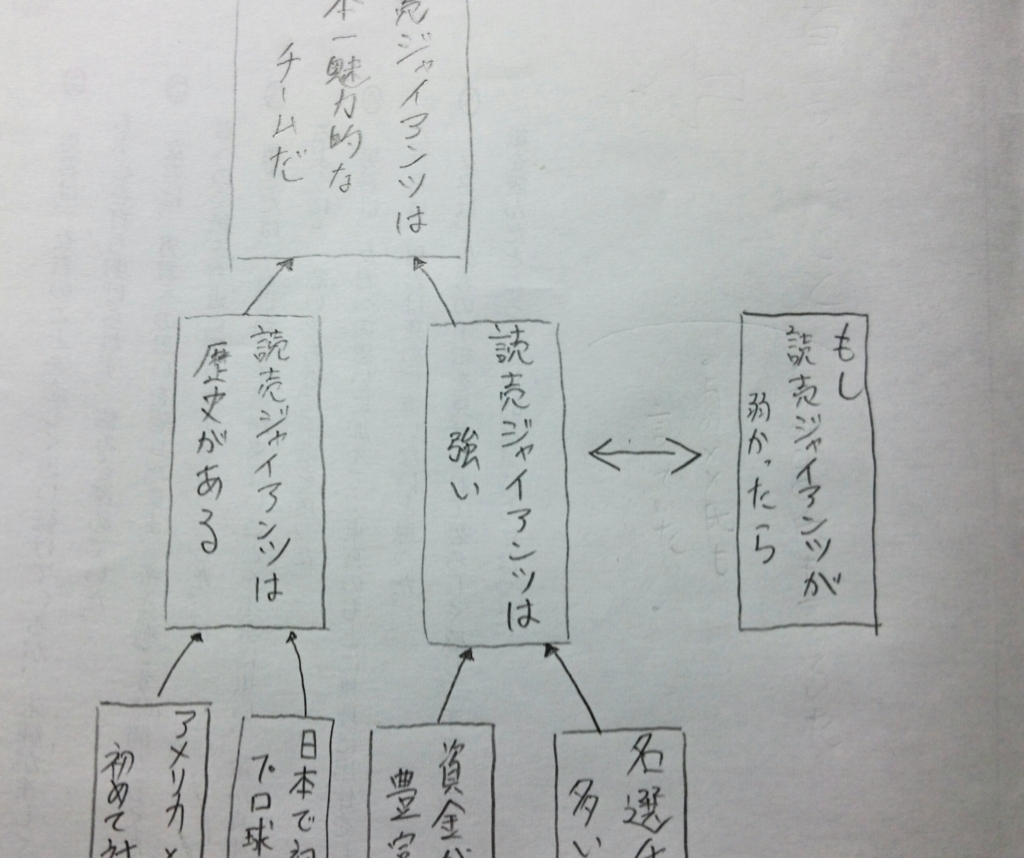 売ジャイアンツは
本一魅力的な
チームだ
もし
読売ジャイアンツが
弱かったら
読売ジャイアンツは
強い
読売ジャイアンツは
歴史がある
名選
多い
資金
豊富
日本で初
プロ球
アメリカ
初めて対